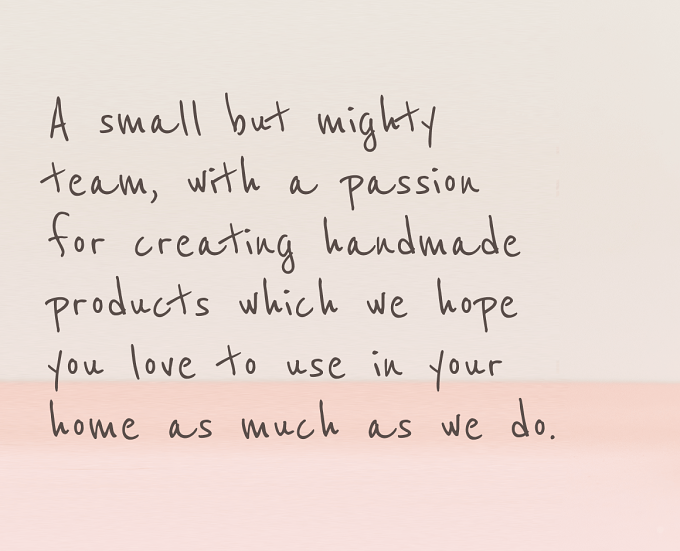 A small but mighty
team, with a passion
for creating handmade
products which we hope
you love to use in your
home as much as we do.